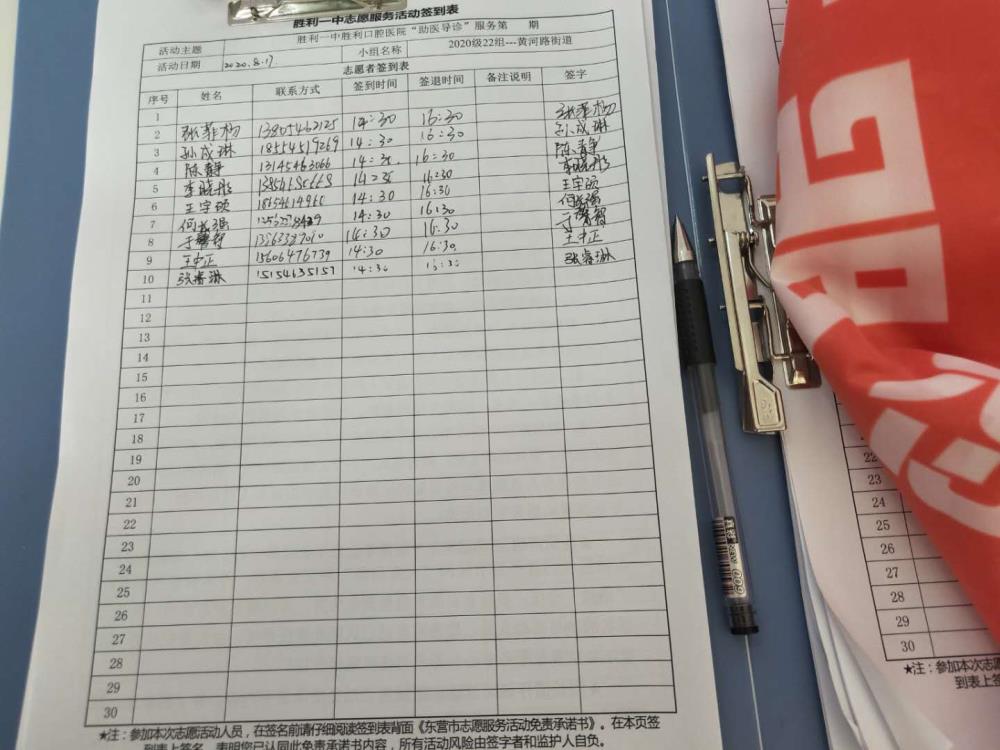 胜利一中志愿服务活动签到表
活动主题 胜利一中胜利口腔医院“助医导诊”服务第 期
活动日期 2020.8.17 小组名称 2020级22组---黄河路街道
志愿者签到表
序号 姓名 联系方式 签到时间 签退时间 备注说明 签字
1
2 张菲杨 13805462125 14:30 16:30 张菲杨
3 孙成琳 18554519269 14:30 16:30 孙成琳
4 陈静 13145463066 14:30. 16:30 陈静
5 李晓彤 16:30 李晓彤
6 王宇硕 14:30 16:30 王宇硕
7 何茂强 14:30 16:30 何茂强
8 于馨智 14:30 16:30 于馨智
9 王中正 15606476739 14:30 16:30 王中正
10 张睿琳 15154635157 14:30 16:30 张睿琳
11
12
13
14
15
16
17
18
19
20
21
22
23
24
25
26
27
28
29
30
★注：参加本次志愿活动人员，在签名前请仔细阅读签到表背面《东营市志愿服务活动免责承诺书》。在本页签
到表上签名，表明您已认同此免责承诺书内容，所有活动风险由签字者和监护人自负。
22
23
24
25
26
27
28
29
30
★注：参加本次志愿
到表上签